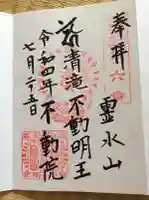 奉拝
霊水山
清滝不動明王
不動院
令和四年
七月二十五日